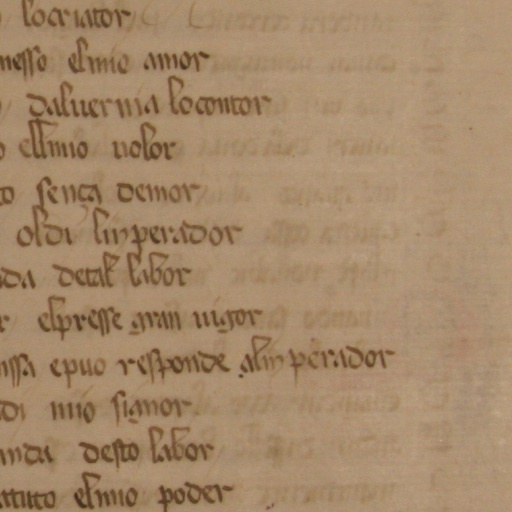 locriator
messo elmio amor
daluernia locontor
ellmio uolor
to sença demor
oldi linperador
da detal labor
r elpresse gran uigor
issa epuo responde alinperador
di mio signor
anda desto labor
atuto elmio poder